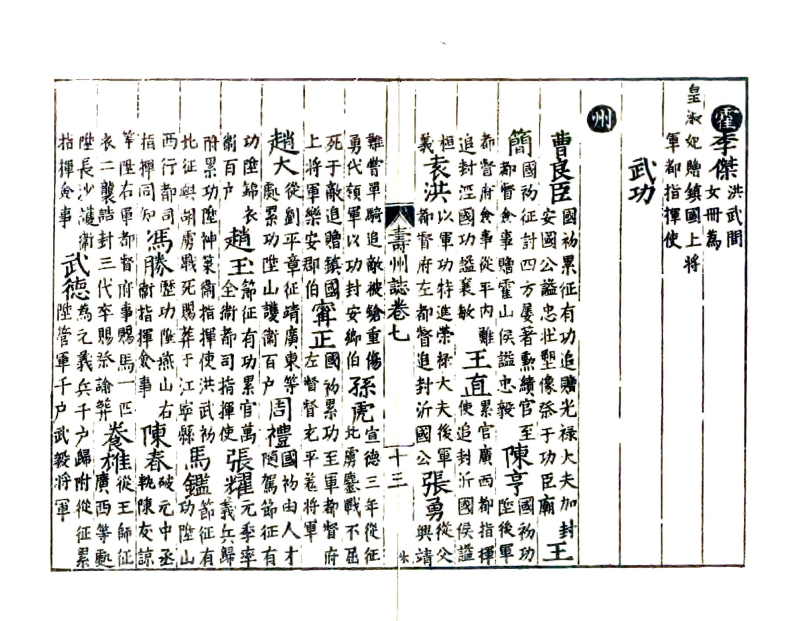 霍
李傑 洪武間
女冊為
皇淑妃贈鎮國上將
軍都指揮使
武功
州
曹良臣 國初累征有功追贈光祿大夫加封
安國公謚忠壯塑像祭于功臣廟 王
簡 國初征討四方屢著勳績官至
都督僉事贈霍山侯謚忠毅 陳亨 國初功
陞後軍
都督府僉事從平内難
追封涇國功謚襄敏 王直 累官廣西都指揮
使追封沂國侯謚
桓
義 袁洪 以軍功特進榮祿大夫後軍
都督府左都督追封沂國公 張勇 從父
興靖
壽州誌卷七 十三
難嘗單騎追敵被鎗重傷
勇代領軍以功封安鄉伯 孫虎 宣德三年從征
北虜鏖戰不屈
死于敵追贈鎮國
上將軍樂安郡伯 甯正 國初累功至軍都督府
左督督充平羗將軍
趙大 從劉平章征靖廣東等
處累功陞山護衛百户 周禮 國初由人才
隨駕節征有
功陞錦衣
衛百户 趙玉 節征有功累官萬
全衛都司指揮使 張耀 元季率
義兵歸
附累功陞神策衛指揮使洪武初
北征與胡虜戰死賜葬于江寧縣 馬鑑 節征有
功陞山
西行都司
指揮同知 馮勝 歷功陞燕山右
衛指揮僉事 陳春 破元中丞
執陳友諒
等陞右軍都督府事賜馬一匹
衣二襲誥封三代卒賜祭諭葬 養雄 從王師征
廣西等處
陞長沙護衛
指揮僉事 武德 為元義兵千户歸附從征累
陞管軍千户武毅將軍